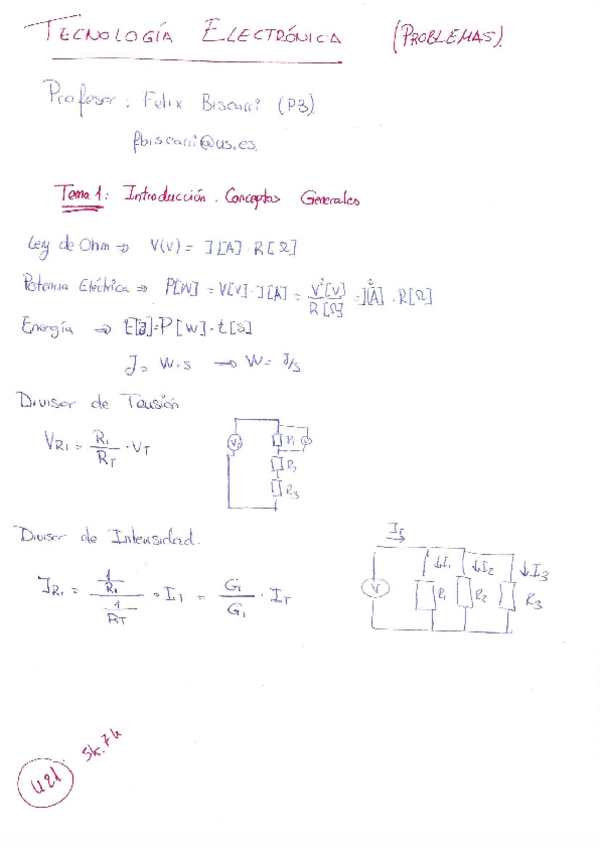 TECNOLOGÍA ELECTRÓNICA (PROBLEMAS).
Profesor: Felix Biscarri (P3).
fbiscarri@us.es.
Tema 1: Introducción. Conceptos Generales
Ley de Ohm → V(V) = I[A] · R[Ω]
Potencia Eléctrica ⇒ P[W] = V[V] · I[A] = V²[V] / R[Ω] = I²[A] · R[Ω]
Energía → E[J] = P[W] · t[s]
J = W · s → W = J/s
Divisor de Tensión
V_R1 = R1 / RT · VT
VT R1 R2 R3
Divisor de Intensidad.
I_R1 = (1/R1) / (1/RT) · IT = G1 / G1 · IT
IT
I1 I2 I3
V R1 R2 R3
5k.74
421